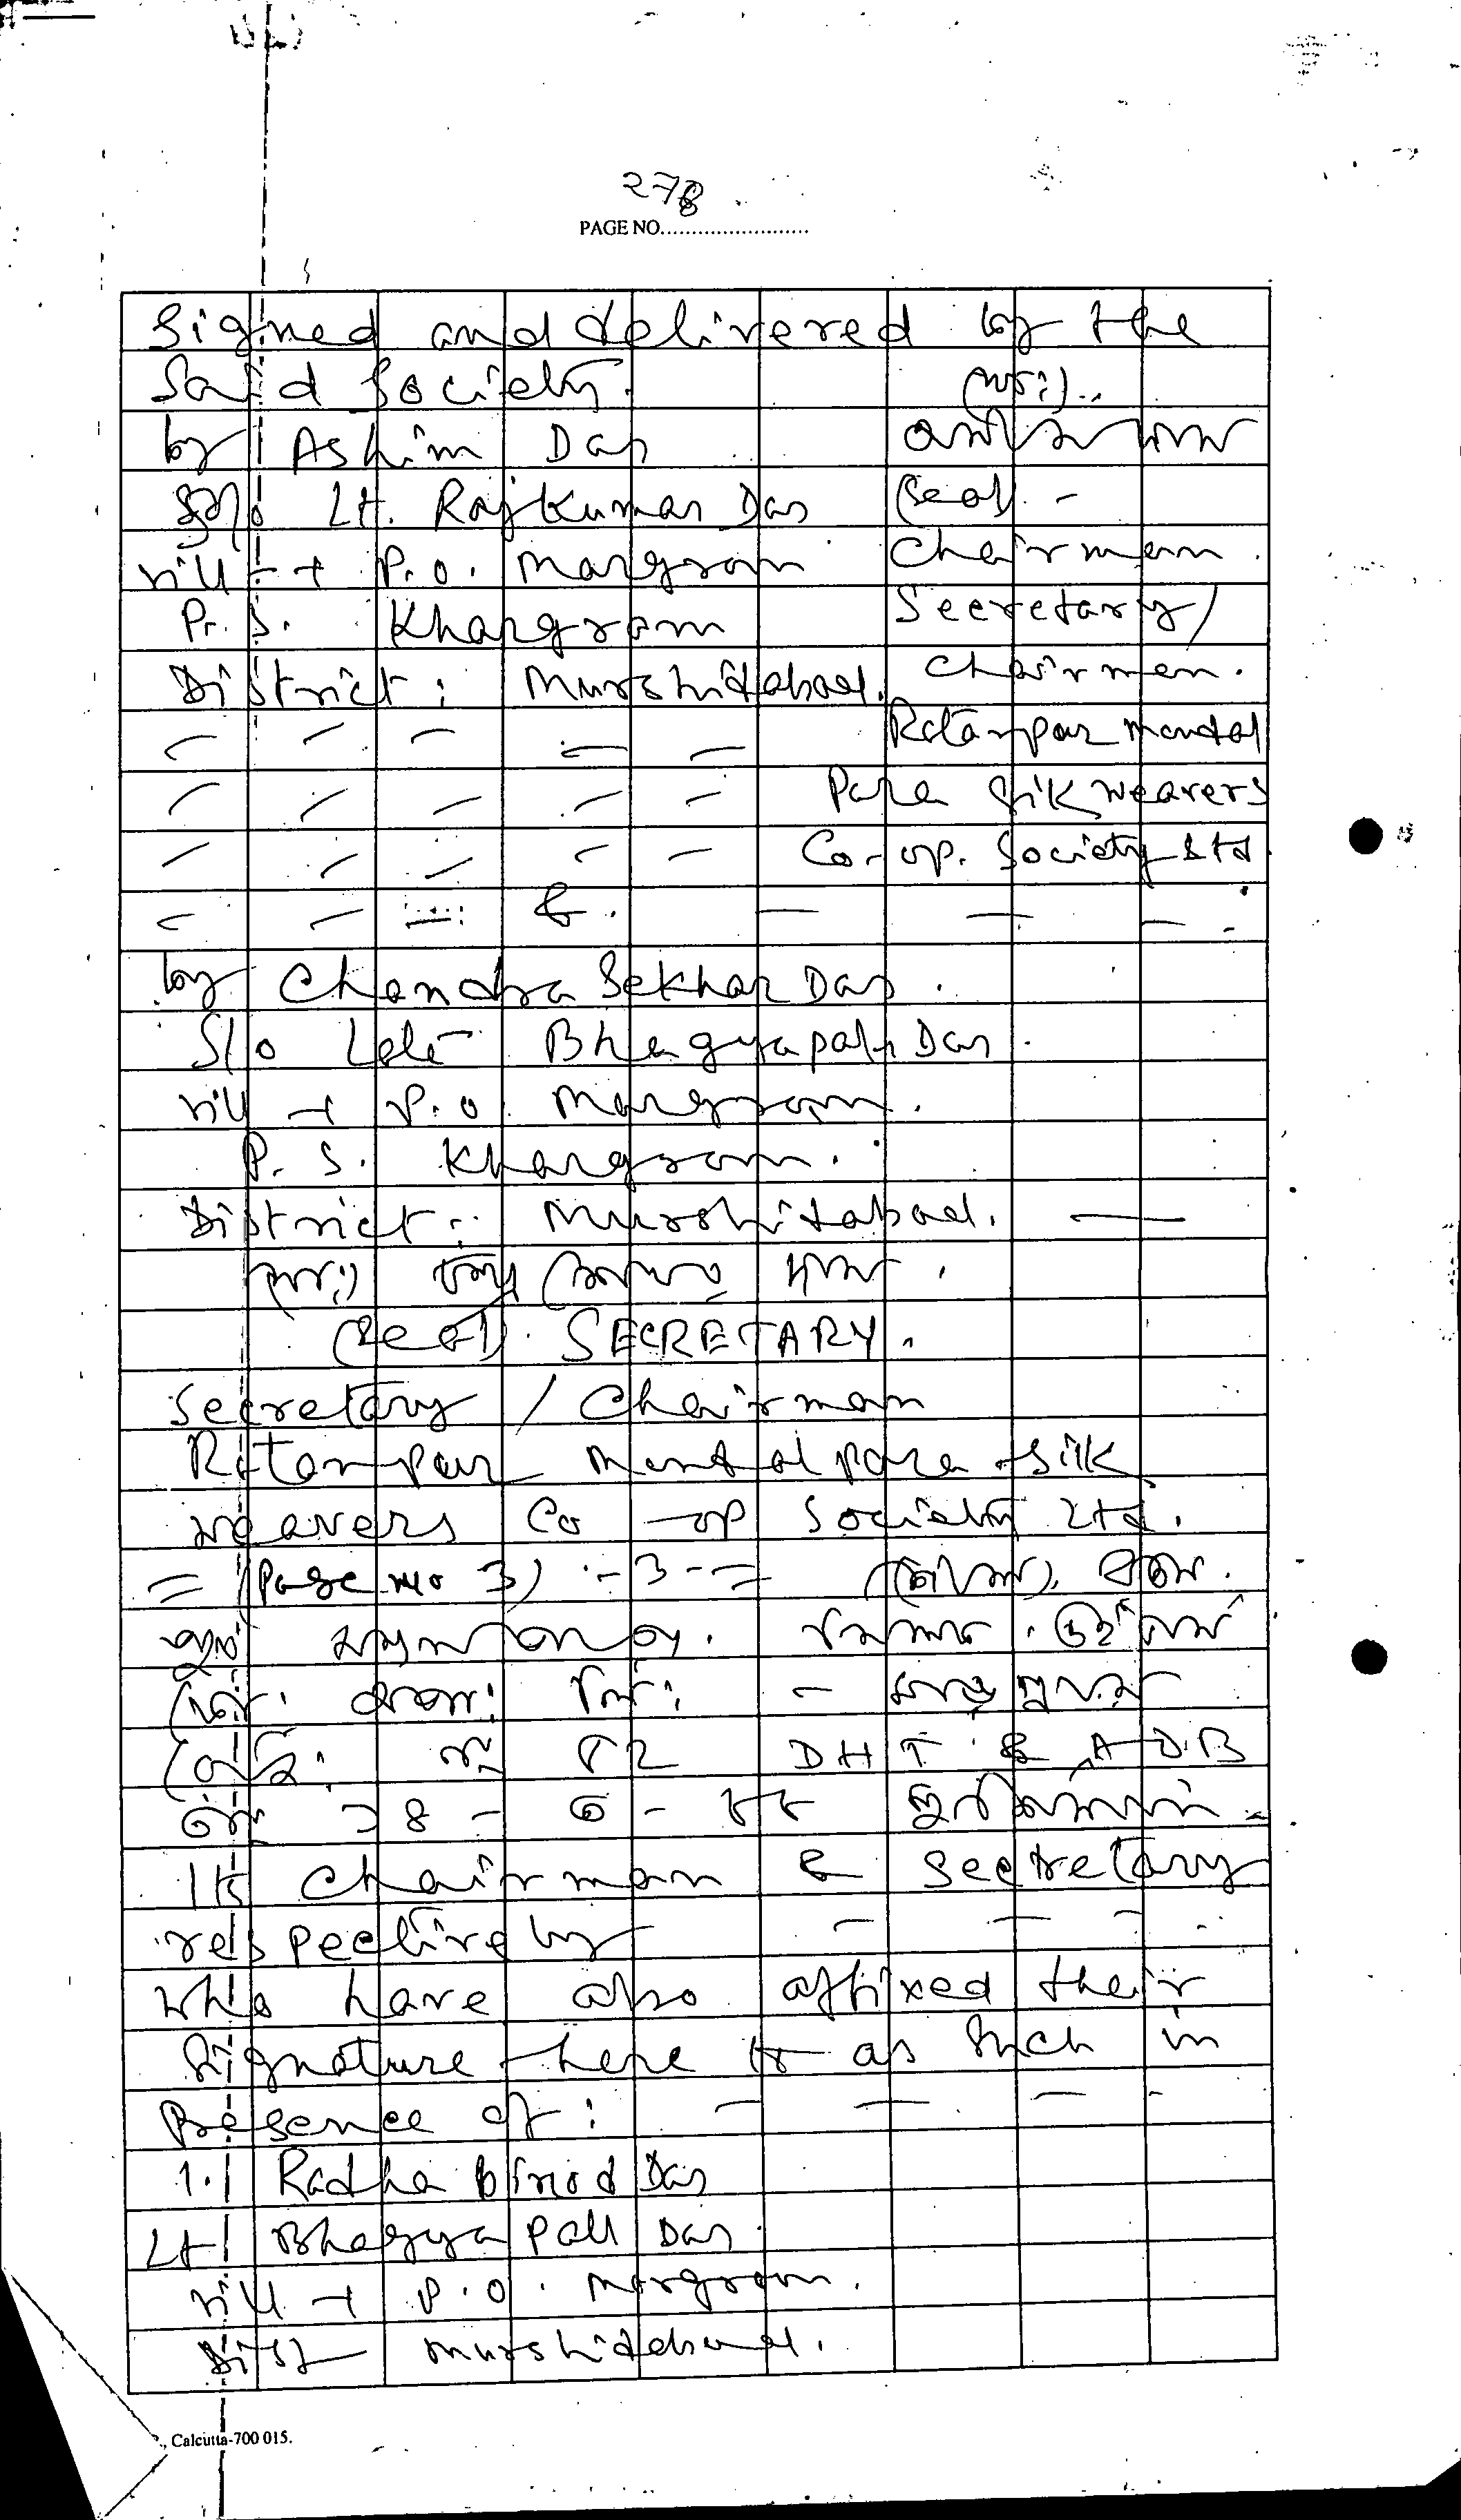 278
PAGE NO.........................
Signed and delivered by the
Said Society. (স্বাঃ)..
by Ashim Das অসীম দাস
S/o Lt. Raj Kumar Das (Seal) -
vill + P.O. Margram Chairman.
P.S. Khargram Secretary/
District: Murshidabad. Chairman.
Ratanpur Mondal
Para Silk weavers
Co-op. Society Ltd.
&.
by Chandra Sekhar Das.
S/o Late Bhagyapati Das.
vill + P.O. Margram.
P.S. Khargram.
District: Murshidabad. —
(স্বাঃ) চন্দ্র শেখর দাস.
(Seal). SECRETARY.
Secretary / Chairman
Ratanpur Mondal para Silk
weavers Co-op Society Ltd.
= (Page No 3) :-3-=
নং ৫২ DHT & ADB
তাং ১৪ - ৩ - ৮৮ মুর্শিদাবাদ.
Its Chairman & Secretary
respectively
who have also affixed their
Signature here to as Such in
Presence of:
1. Radha binod Das
Lt Bhagya Pati Das
vill + P.O. Margram.
Dist Murshidabad.
Calcutta-700 015.